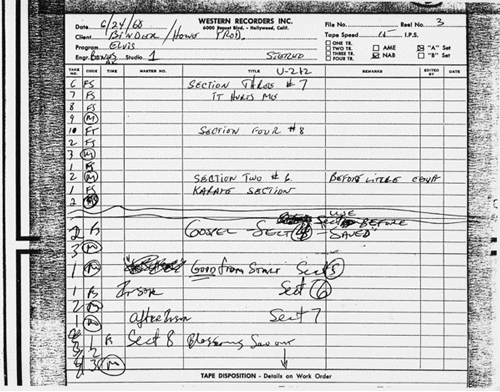 WESTERN RECORDERS INC.
6000 Sunset Blvd. - Hollywood, Calif.
Date 6/24/68
File No. Reel No. 3
Client BINDER / HOWE PROD.
Tape Speed 15 I.P.S.
Program ELVIS
ONE TR.
TWO TR.
THREE TR.
FOUR TR.
AME
NAB
"A" Set
"B" Set
Engr. Studio 1 STEREO
TAKE NO. CODE TIME MASTER NO. TITLE REMARKS EDITED BY DATE
U-212
6 FS SECTION THREE # 7
7 FS IT HURTS ME
8 FS
9 M
10 FS SECTION FOUR # 8
2 FS
3 M
1 FS
2 M SECTION TWO # 6 BEFORE LITTLE
1 FS KARATE SECTION
2 FS
USE
2 GOSPEL - SECT 4 - BEFORE
"SAVED"
3 M
1 M GOOD from START Sect 5
1 Sect 6
2 M
1 M Sect 7
1 Sect 8
2
3 M
TAPE DISPOSITION - Details on Work Order